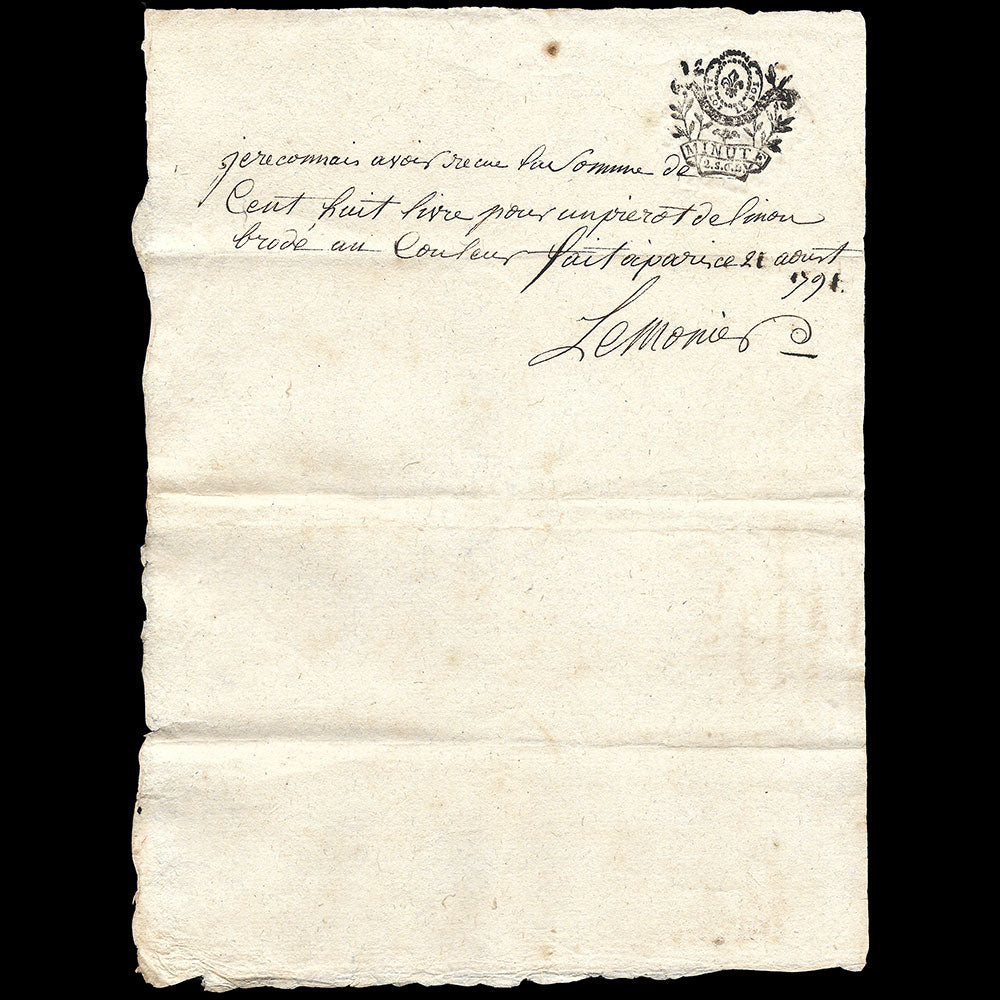 LA LOI LE ROI
MINUTE
je reconnais avoir recue la Somme de
Cent huit livre pour un pierot de linon
brodé au Couleur fait a paris ce 21 aoust
1791.
Lemonier